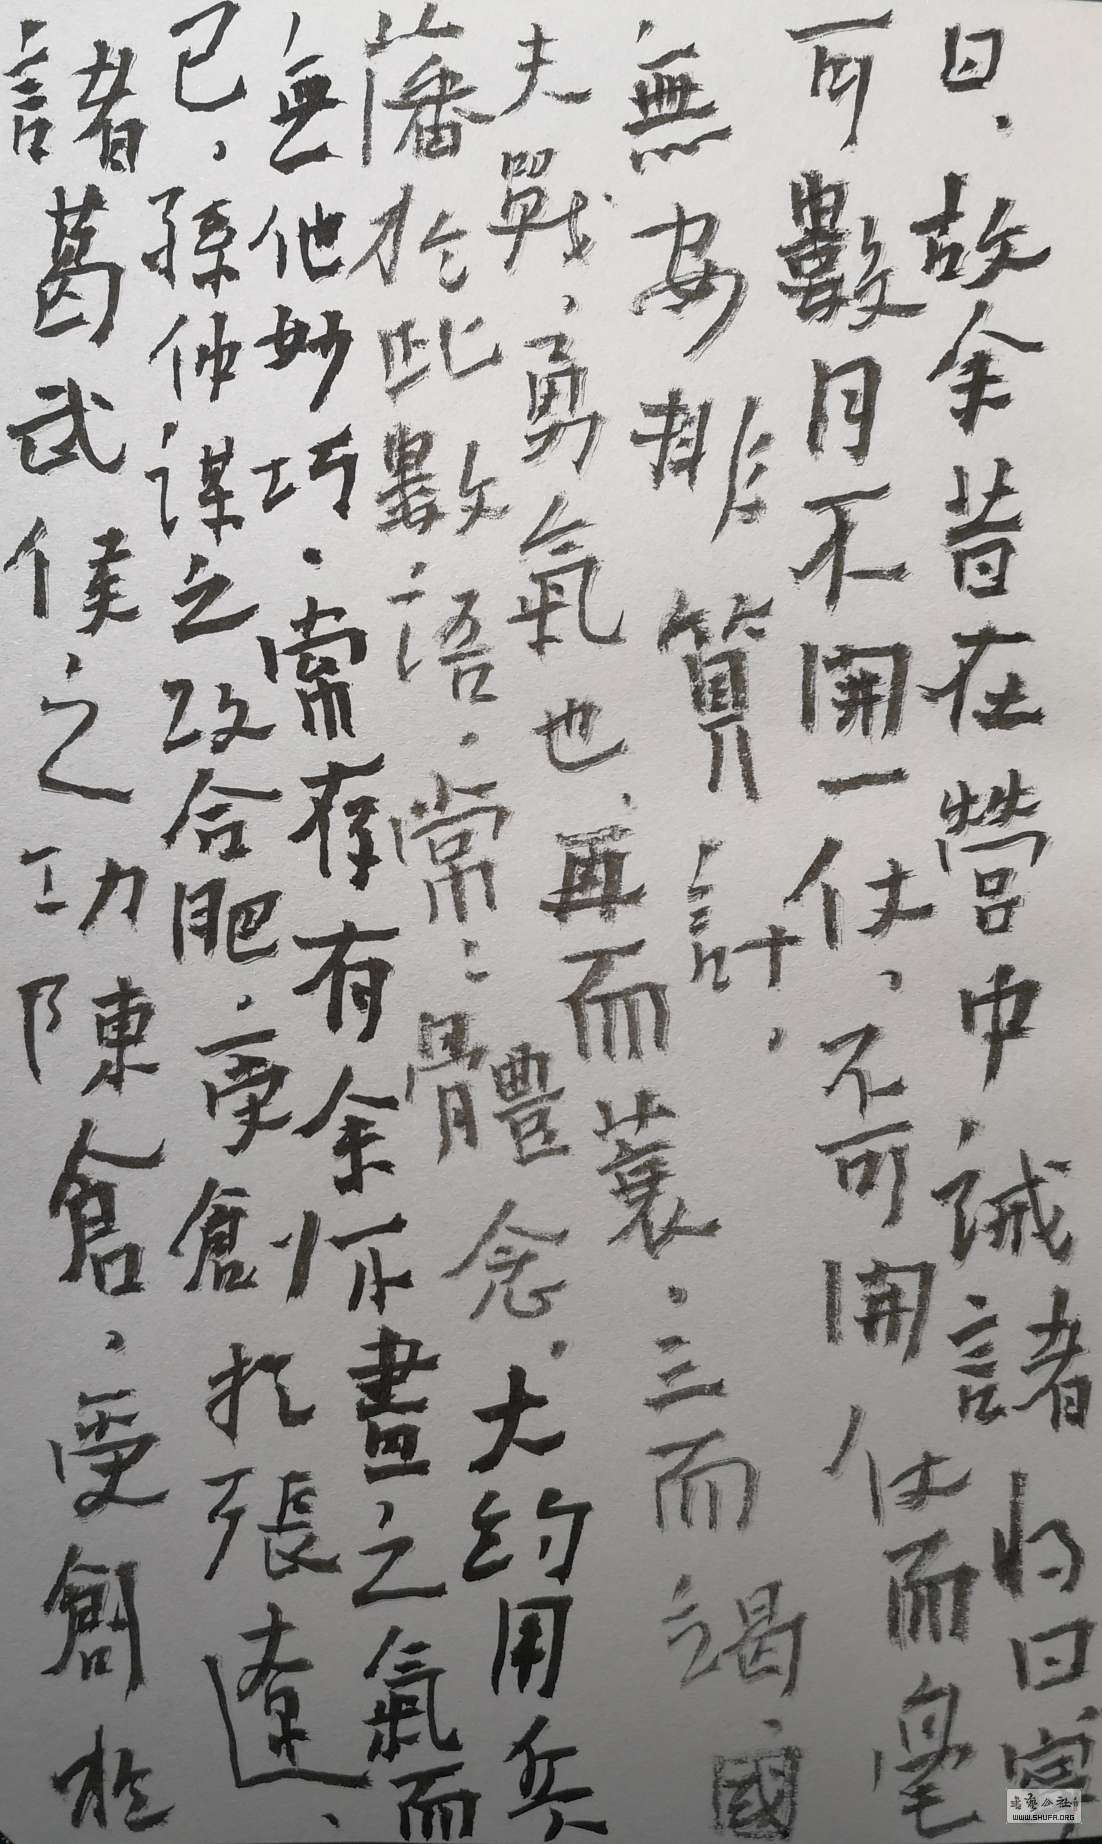 日、故余昔在營中、誡諸将曰、寧
可數月不開一仗、不可開仗而毫
無安排算計、
夫戰、勇氣也、再而衰、三而竭、國
藩於此數語、常、體念、大約用兵
無他妙巧、常存有余不盡之氣而
已、孫仲谋之攻合肥、受創於張遼、
諸葛武侯之功陳倉、受創於
書藝公社
WWW.SHUFA.ORG